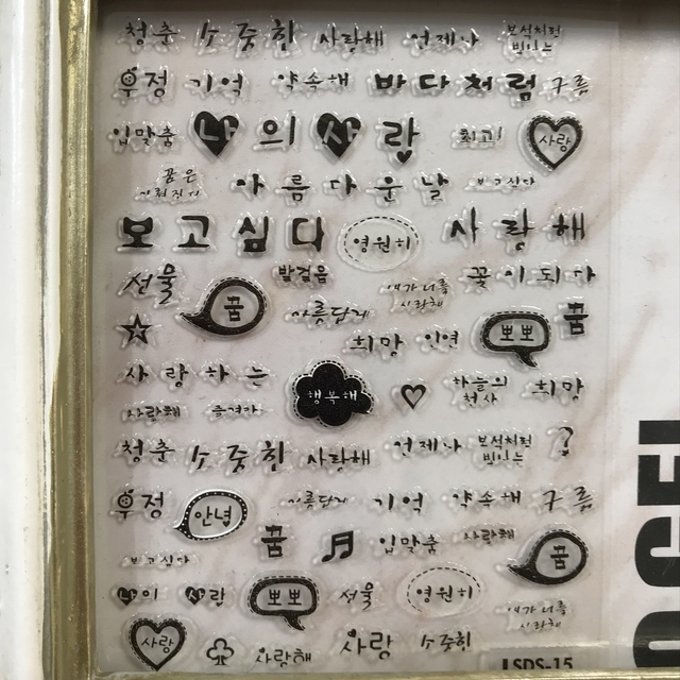 청춘 소중한 사랑해 언제나 보석처럼 빛나는
우정 기억 약속해 바다처럼 구름
입맞춤 나의 사랑 최고! 사랑
꿈은 이뤄진다 아름다운 날 보고싶다
보고싶다 영원히 사랑해
선물 발걸음 내가 너를 사랑해 꽃이되다
꿈 아름답게 꿈
희망 인연 뽀뽀
사랑하는 행복해 하늘의 천사 희망
사랑해 즐겨가
청춘 소중한 사랑해 언제나 보석처럼 빛나는 ?
우정 안녕 아름답게 기억 약속해 구름
꿈 입맞춤 사랑해 꿈
보고싶다
나의 사랑 뽀뽀 선물 영원히 내가 너를 사랑해
사랑 사랑해 사랑 소중한
LSDS-15